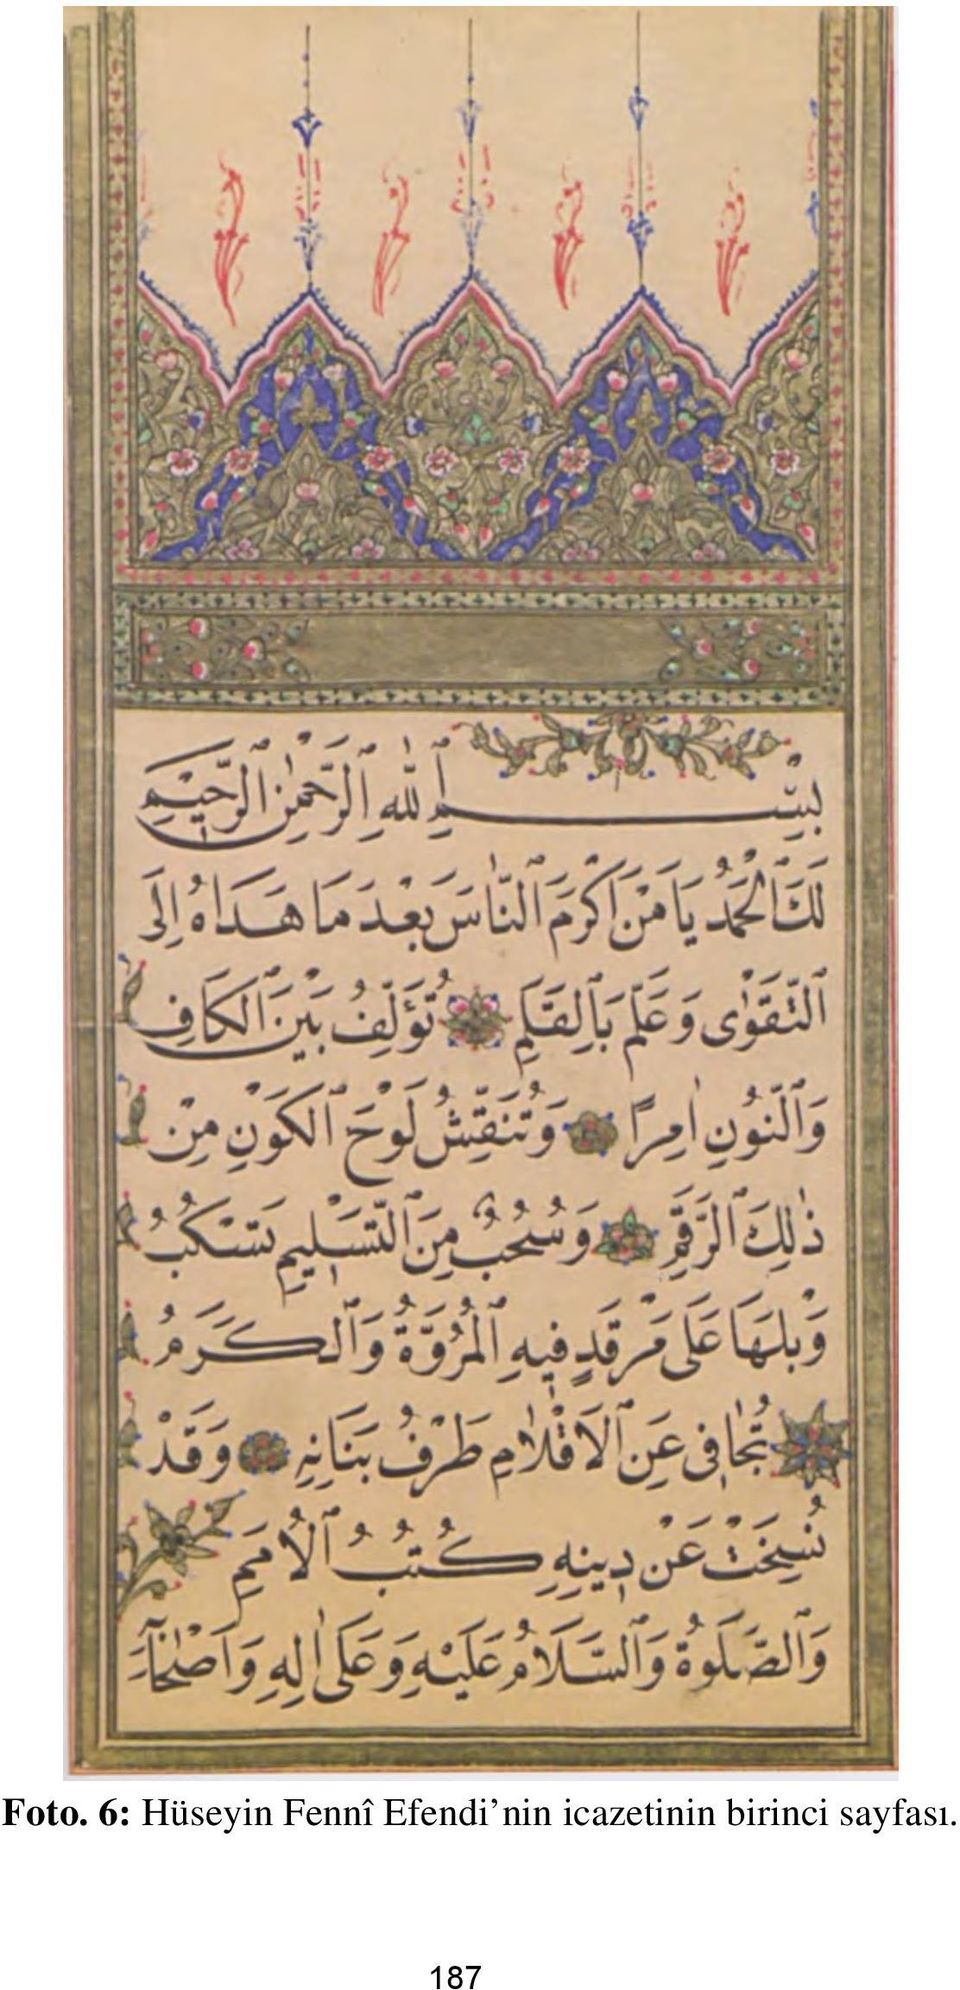 بِسْمِ اللّٰهِ الرَّحْمٰنِ الرَّحِيمِ
لَكَ الْحَمْدُ يَا مَنْ اَكْرَمَ النَّاسَ بَعْدَ مَا هَدَاهُ اِلَى
التَّقْوٰى وَعَلَّمَ بِالْقَلَمِ تُؤَلِّفُ بَيْنَ الْكَافِ
وَالنُّونِ اٰمِرًا وَتُنَقِّشُ لَوْحَ الْكَوْنِ مِنْ
ذٰلِكَ الرَّقَمِ وَسُحْبٌ مِنَ التَّسْلِيمِ تَسْكُبُ
وَبْلَهَا عَلَى مَرْقَدٍ فِيهِ الْمُرُوَّةُ وَالْكَرَمُ
تَجَافٰى عَنِ الْاَقْلَامِ طَرْفُ بَنَانِهِ وَقَدْ
نُسِخَتْ عَنْ دِينِهِ كُتُبُ الْاُمَمِ
وَالصَّلٰوةُ وَالسَّلَامُ عَلَيْهِ وَعَلَى اٰلِهِ وَاَصْحَابِهِ
Foto. 6: Hüseyin Fennî Efendi’nin icazetinin birinci sayfası.
187